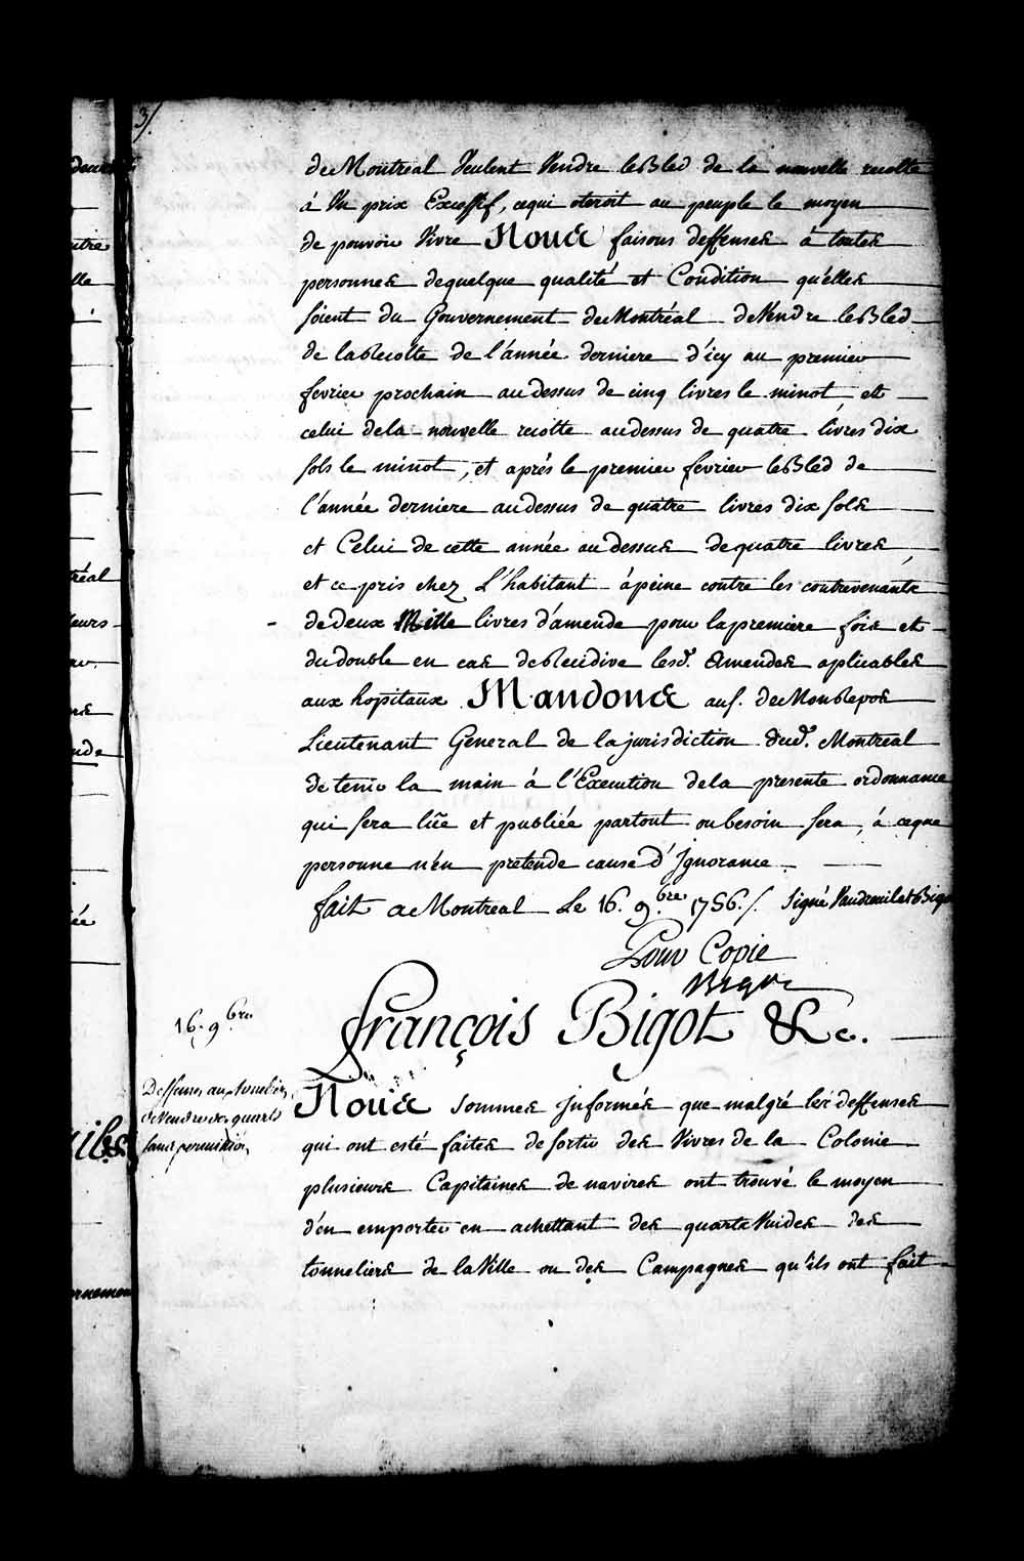 3/.
de Montreal veulent vendre le Bled de la nouvelle recolte
à un prix Excessif, cequi oteroit au peuple le moyen
de pouvoir vivre Nous faisons deffenses à toutes
personnes dequelque qualité et Condition qu'elles
soient du Gouvernement de Montréal de vendre le Bled
de la Recolte de l'année derniere d'icy au premier
fevrier prochain au dessus de cinq livres le minot, et
celui dela nouvelle recolte au dessus de quatre livres dix
sols le minot, et aprés le premier fevrier le Bled de
l'année derniere au dessus de quatre livres dix sols
et Celui de cette année au dessus de quatre livres,
et ce pris chez L'habitant àpeine contre les contrevenants
de deux Mille livres d'amende pour la premiere fois et
du double en cas de Recidive lesd. Amendes aplicables
aux hopitaux Mandons au S. de Monrepos
Lieutenant General de la jurisdiction dud. Montreal
de tenir la main à l'Execution dela presente ordonnance
qui sera lüe et publiée partout ou besoin sera, à ceque
personne n'en pretende cause d'Ignorance
fait a Montreal Le 16. 9.bre 1756./. Signé Vaudreuil et Bigot
Pour Copie
Bigot
16. 9.bre
François Bigot &c.
Deffenses aux Tonneliers
de Vendre des quarts
sans permission
Nous sommes Informés que malgré les deffenses
qui ont esté faites de sortir des vivres de la Colonie
plusieurs Capitaines de navires ont trouvé le moyen
d'en emporter en achettant des quarts vuides des
tonneliers de la Ville ou des Campagnes qu'ils ont fait